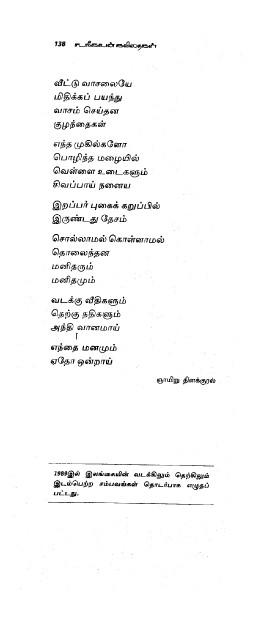 138 சடகோபன் கவிதைகள்
வீட்டு வாசலையே
மிதிக்கப் பயந்து
வாசம் செய்தன
குழந்தைகள்
எந்த முகில்களோ
பொழிந்த மழையில்
வெள்ளை உடைகளும்
சிவப்பாய் நனைய
இறப்பர் புகைக் கறுப்பில்
இருண்டது தேசம்
சொல்லாமல் கொள்ளாமல்
தொலைந்தன
மனிதரும்
மனிதமும்
வடக்கு வீதிகளும்
தெற்கு நதிகளும்
அந்தி வானமாய்
எந்தை மனமும்
ஏதோ ஒன்றாய்
ஞாயிறு தினக்குரல்
1989இல் இலங்கையின் வடக்கிலும் தெற்கிலும்
இடம்பெற்ற சம்பவங்கள் தொடர்பாக எழுதப்
பட்டது.